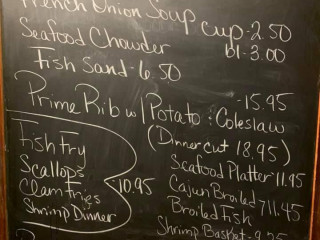 French Onion Soup
cup-2.50
Seafood Chowder
bl-3.00
Fish Sand-6.50
Prime Rib w/ Potato & Coleslaw
-15.95
(Dinner cut 18.95)
Fish Fry
Scallops
Clam Fries
Shrimp Dinner
-10.95
Seafood Platter 11.95
Cajun Broiled
Broiled Fish
11.45
Shrimp Basket-9.25